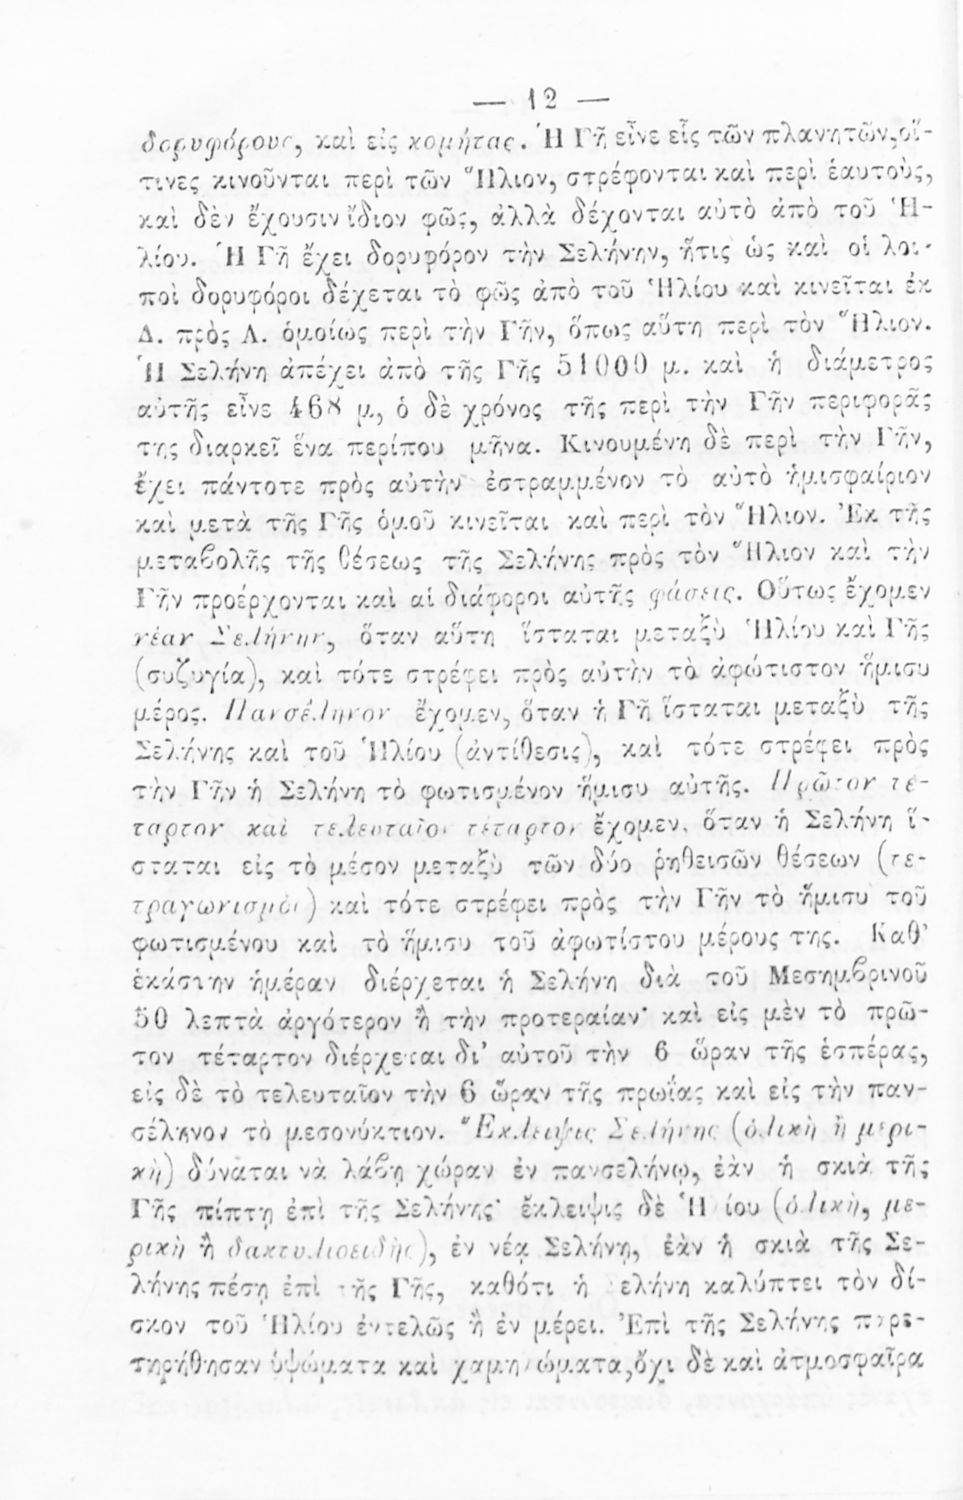 — 12 —
δορυφόρους, καὶ εἰς κομήτας. Ἡ Γῆ εἶνε εἷς τῶν πλανητῶν,οἵ-
τινες κινοῦνται περὶ τῶν Ἥλιον, στρέφονται καὶ περὶ ἑαυτοὺς,
καὶ δὲν ἔχουσιν ἴδιον φῶς, ἀλλὰ δέχονται αὐτὸ ἀπὸ τοῦ Ἡ-
λίου. Ἡ Γῆ ἔχει δορυφόρον τὴν Σελήνην, ἥτις ὡς καὶ οἱ λοι-
ποὶ δορυφόροι δέχεται τὸ φῶς ἀπὸ τοῦ Ἡλίου καὶ κινεῖται ἐκ
Δ. πρὸς Α. ὁμοίως περὶ τὴν Γῆν, ὅπως αὕτη περὶ τὸν Ἥλιον.
Ἡ Σελήνη ἀπέχει ἀπὸ τῆς Γῆς 51000 μ. καὶ ἡ διάμετρος
αὐτῆς εἶνε 468 μ, ὁ δὲ χρόνος τῆς περὶ τὴν Γῆν περιφορᾶς
της διαρκεῖ ἕνα περίπου μῆνα. Κινουμένη δὲ περὶ τὴν Γῆν,
ἔχει πάντοτε πρὸς αὐτὴν ἐστραμμένον τὸ αὐτὸ ἡμισφαίριον
καὶ μετὰ τῆς Γῆς ὁμοῦ κινεῖται καὶ περὶ τὸν Ἥλιον. Ἐκ τῆς
μεταβολῆς τῆς θέσεως τῆς Σελήνης πρὸς τὸν Ἥλιον καὶ τὴν
Γῆν προέρχονται καὶ αἱ διάφοροι αὐτῆς φάσεις. Οὕτως ἔχομεν
νέαν Σελήνην, ὅταν αὕτη ἵσταται μεταξὺ Ἡλίου καὶ Γῆς
(συζυγία), καὶ τότε στρέφει πρὸς αὐτὴν τὸ ἀφώτιστον ἥμισυ
μέρος. Πανσέληνον ἔχομεν, ὅταν ἡ Γῆ ἵσταται μεταξὺ τῆς
Σελήνης καὶ τοῦ Ἡλίου (ἀντίθεσις), καὶ τότε στρέφει πρὸς
τὴν Γῆν ἡ Σελήνη τὸ φωτισμένον ἥμισυ αὐτῆς. Πρῶτον τέ-
ταρτον καὶ τελευταῖον τέταρτον ἔχομεν, ὅταν ἡ Σελήνη ἵ-
σταται εἰς τὸ μέσον μεταξὺ τῶν δύο ῥηθεισῶν θέσεων (τε-
τραγωνισμὸι) καὶ τότε στρέφει πρὸς τὴν Γῆν τὸ ἥμισυ τοῦ
φωτισμένου καὶ τὸ ἥμισυ τοῦ ἀφωτίστου μέρους της. Καθ'
ἑκάστην ἡμέραν διέρχεται ἡ Σελήνη διὰ τοῦ Μεσημβρινοῦ
50 λεπτὰ ἀργότερον ἢ τὴν προτεραίαν· καὶ εἰς μὲν τὸ πρῶ-
τον τέταρτον διέρχεται δι' αὐτοῦ τὴν 6 ὥραν τῆς ἑσπέρας,
εἰς δὲ τὸ τελευταῖον τὴν 6 ὥραν τῆς πρωΐας καὶ εἰς τὴν παν-
σέληνον τὸ μεσονύκτιον. Ἔκλειψις Σελήνης (ὁλικὴ ἢ μερι-
κὴ) δύναται νὰ λάβῃ χώραν ἐν πανσελήνῳ, ἐὰν ἡ σκιὰ τῆς
Γῆς πίπτῃ ἐπὶ τῆς Σελήνης· ἔκλειψις δὲ Ἡλίου (ὁλικὴ, με-
ρικὴ ἢ δακτυλιοειδὴς), ἐν νέᾳ Σελήνῃ, ἐὰν ἡ σκιὰ τῆς Σε-
λήνης πέσῃ ἐπὶ τῆς Γῆς, καθότι ἡ Σελήνη καλύπτει τὸν δί-
σκον τοῦ Ἡλίου ἐντελῶς ἢ ἐν μέρει. Ἐπὶ τῆς Σελήνης παρε-
τηρήθησαν ὑψώματα καὶ χαμηλώματα,ὄχι δὲ καὶ ἀτμοσφαῖρα